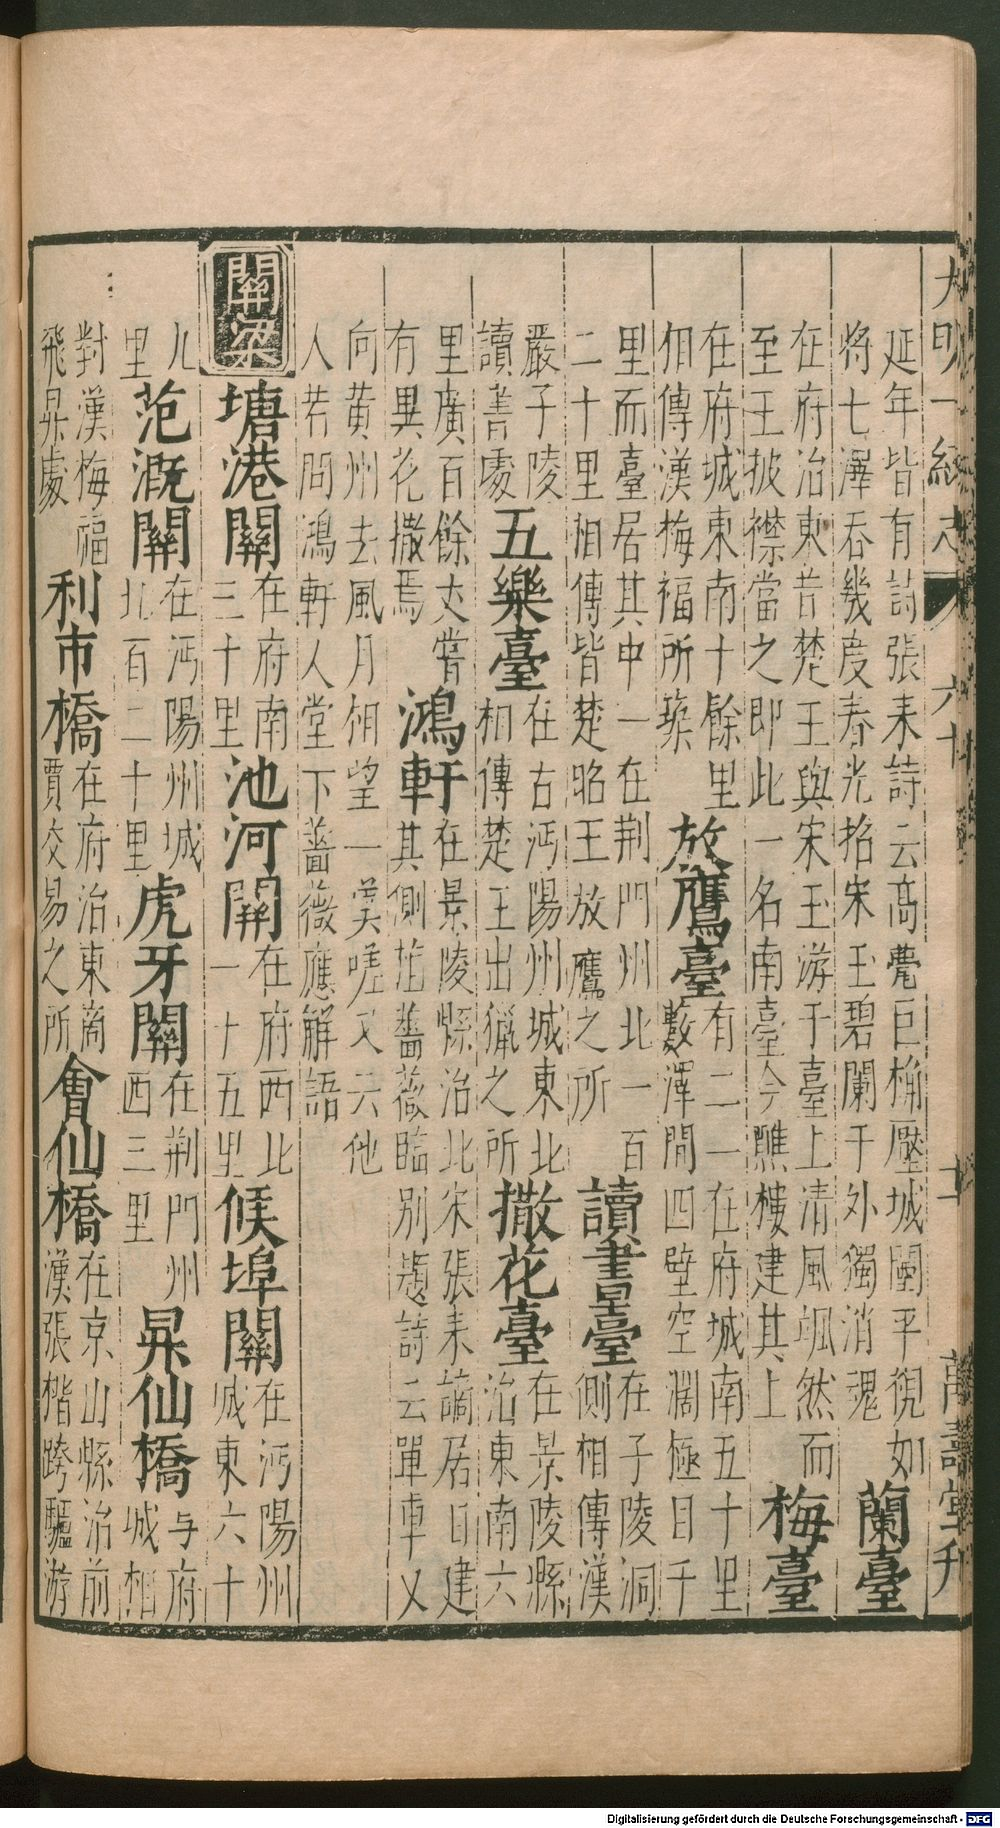 大明一統志 卷六十 萬壽堂刋
延年皆有詩張耒詩云高甍巨桷壓城闉平視如
將七澤吞幾度春光招宋玉碧闌干外獨消魂
蘭臺
在府治東昔楚王與宋玉游于臺上清風颯然而
至王披襟當之即此一名南臺今醮樓建其上
梅臺
在府城東南十餘里
相傳漢梅福所築
放鷹臺
有二一在府城南五十里
藪澤間四壁空濶極目千
里而臺居其中一在荆門州北一百
二十里相傳皆楚昭王放鷹之所
讀書臺
在子陵洞
側相傳漢
嚴子陵
讀書處
五樂臺
在古沔陽州城東北
相傳楚王出獵之所
撒花臺
在景陵縣
治東南六
里廣百餘丈嘗
有異花撒焉
鴻軒
在景陵縣治北宋張耒謫居日建
其側植薔薇臨別題詩云單車又
向黄州去風月相望一嘆嗟又云他
人若問鴻軒人堂下薔薇應解語
關梁
塘港關
在府南
三十里
池河關
在府西北
一十五里
候埠關
在沔陽州
城東六十
九
里
范溉關
在沔陽州城
北百二十里
虎牙關
在荆門州
西三里
昇仙橋
与府
城相
對漢梅福
飛昇處
利市橋
在府治東商
賈交易之所
會仙橋
在京山縣治前
漢張楷跨驢游
Digitalisierung gefördert durch die Deutsche Forschungsgemeinschaft - DFG